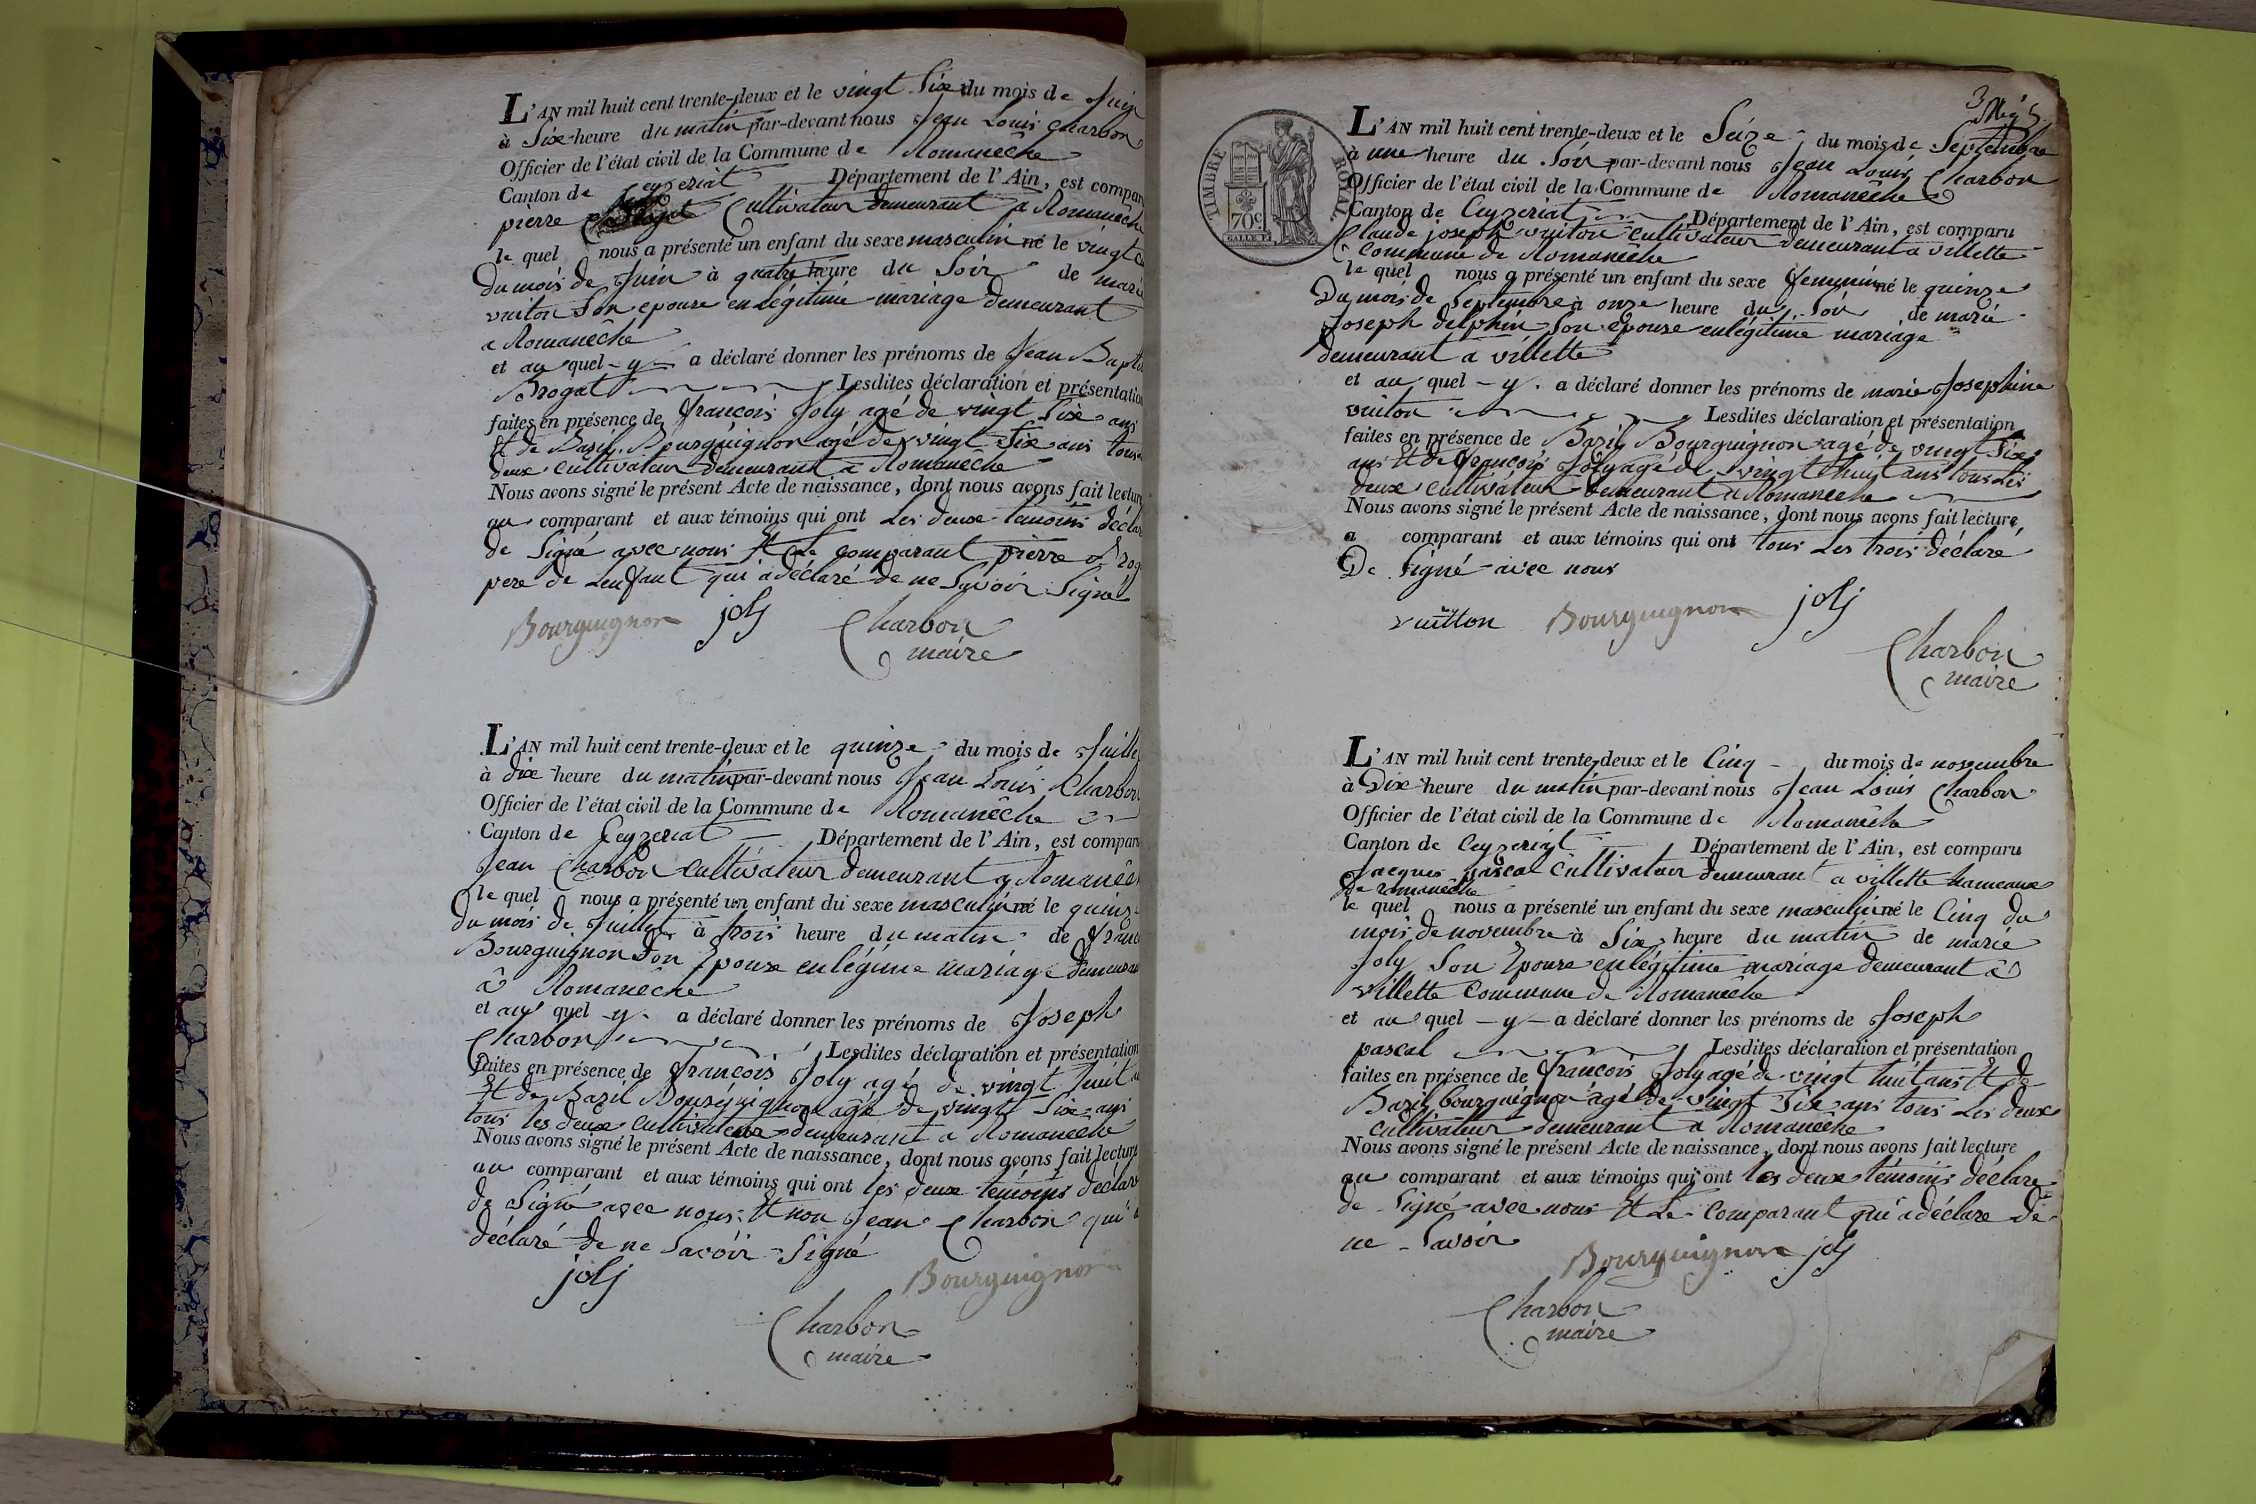 L'AN mil huit cent trente-deux et le vingt Six du mois de Juin
à Six heure du matin par-devant nous Jean Louis Charbon
Officier de l'état civil de la Commune de Romanêche
Canton de Ceyzeriat Département de l'Ain, est compar
pierre Cultivateur demeurant a Romanêche
le quel nous a présenté un enfant du sexe masculin né le vingt
du mois de Juin à quatre heure du Soir de marie
vuiton Son epouse en légitime mariage demeurant
a Romanêche
et au quel -y- a déclaré donner les prénoms de Jean Bapti
Brogat Lesdites déclaration et présentation
faites en présence de françois Joly agé de vingt Six ans
Et de Bazil Bourguignon agé de vingt Six ans tous
deux cultivateur demeurant a Romanêche
Nous avons signé le présent Acte de naissance, dont nous avons fait lecture
au comparant et aux témoins qui ont Les deux témoins déclar
de Signé avec nous Et Le comparant pierre Brog
pere de Lenfant qui a déclaré de ne Savoir Signé
Bourguignon joly Charbon
maire
L'AN mil huit cent trente-deux et le quinze du mois de Juille
à dix heure du matin par-devant nous Jean Louis Charbon
Officier de l'état civil de la Commune de Romanêche
Canton de Ceyzeriat Département de l'Ain, est compar
Jean Charbon cultivateur demeurant a Romanêch
le quel nous a présenté un enfant du sexe masculin né le quinze
du mois de Juillet à trois heure du matin de franc
Bourguignon Son Epouse en légitime mariage demeuran
à Romanêche
et au quel -y- a déclaré donner les prénoms de Joseph
Charbon Lesdites déclaration et présentation
faites en présence de françois Joly agé de vingt huit a
Et de Bazil Bourguignon agé de vingt Six ans
tous les deux cultivateur demeurant a Romanêche
Nous avons signé le présent Acte de naissance, dont nous avons fait lecture
au comparant et aux témoins qui ont les deux témoins déclaré
de Signé avec nous Et non Jean Charbon qui a
déclaré de ne Savoir Signé
joly Bourguignon
Charbon
maire
3
TIMBRE ROYAL
70c
L'AN mil huit cent trente-deux et le Seize du mois de Septembre
à une heure du Soir par-devant nous Jean Louis Charbon
Officier de l'état civil de la Commune de Romanêche
Canton de Ceyzeriat Département de l'Ain, est comparu
Claude joseph vuiton cultivateur demeurant a villette
Commune de Romanêche
le quel nous a présenté un enfant du sexe femminin né le quinze
Du mois de Septembre à onze heure du Soir de marie
Joseph delphin Son epouse en légitime mariage
demeurant a villette
et au quel -y- a déclaré donner les prénoms de marie Josephine
vuiton Lesdites déclaration et présentation
faites en présence de Bazil Bourguignon agé de vingt Six
ans Et de françois Joly agé de vingt huit ans tous Les
deux cultivateur demeurant a Romanêche
Nous avons signé le présent Acte de naissance, dont nous avons fait lecture,
a comparant et aux témoins qui ont tous Les trois déclaré
De Signé avec nous
vuitton Bourguignon joly
Charbon
maire
L'AN mil huit cent trente-deux et le Cinq du mois de novembre
à Dix heure du matin par-devant nous Jean Louis Charbon
Officier de l'état civil de la Commune de Romanêche
Canton de Ceyzeriat Département de l'Ain, est comparu
Jacques pascal Cultivateur demeurant a villette hameaux
de romanêche
le quel nous a présenté un enfant du sexe masculin né le Cinq du
mois de novembre à Six heure du matin de marie
Joly Son Epouse en légitime mariage demeurant à
villette Commune de Romanêche
et au quel -y- a déclaré donner les prénoms de Joseph
pascal Lesdites déclaration et présentation
faites en présence de françois Joly agé de vingt huit ans Et de
Bazil bourguignon agé de vingt Six ans tous Les deux
cultivateur demeurant a Romanêche
Nous avons signé le présent Acte de naissance, dont nous avons fait lecture
au comparant et aux témoins qui ont les deux témoins déclaré
de Signé avec nous Et Le Comparant qui a déclaré de
ne Savoir
Bourguignon joly
Charbon
maire